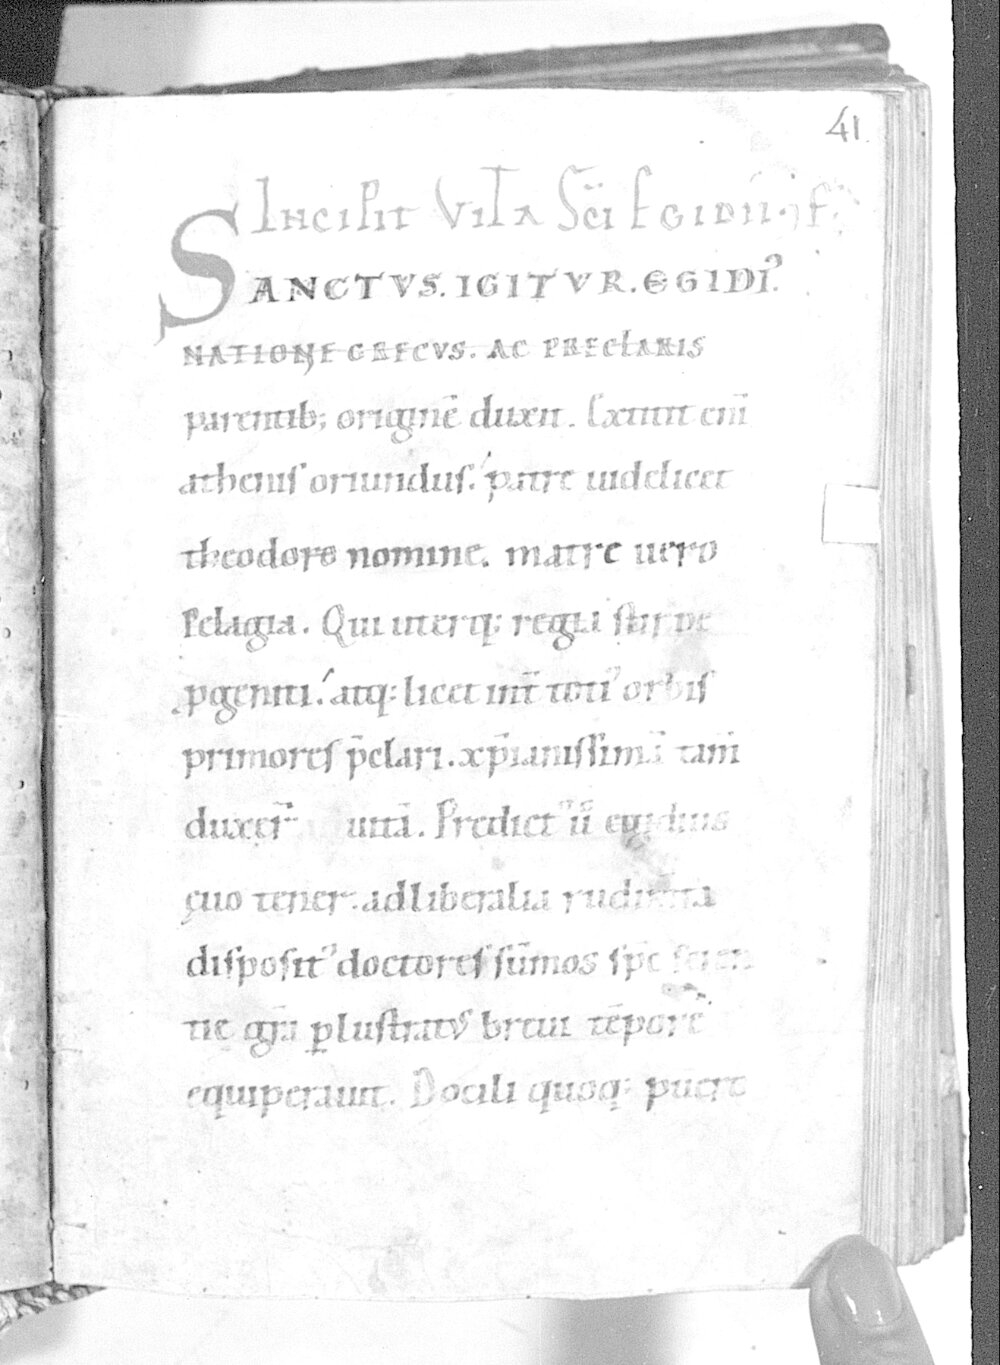 41
Incipit Vita Sc̄i Egidii
SANCTVS. IGITVR. EGIDI᾿
NATIONE GRECVS. AC PRECLARIS
parentib; originē duxit. Extitit enī᷎
athenis oriundus. patre uidelicet
theodoro nomine. matre uero
Pelagia. Qui uterq; regia stirpe
ꝓgeniti. atq; licet int̄ toti᾿ orbis
primores p̄clari. xp̄ianissimā tam̄
duxer̄ uitā. Predict᾿ u̅ egidius
ęuo tener. ad liberalia rudim̄ta
disposit᾿ doctores sūmos sp̄e scien
tie gr̄a ꝑlustratus breui tēpore
equiperauit. Docili quoq; puero